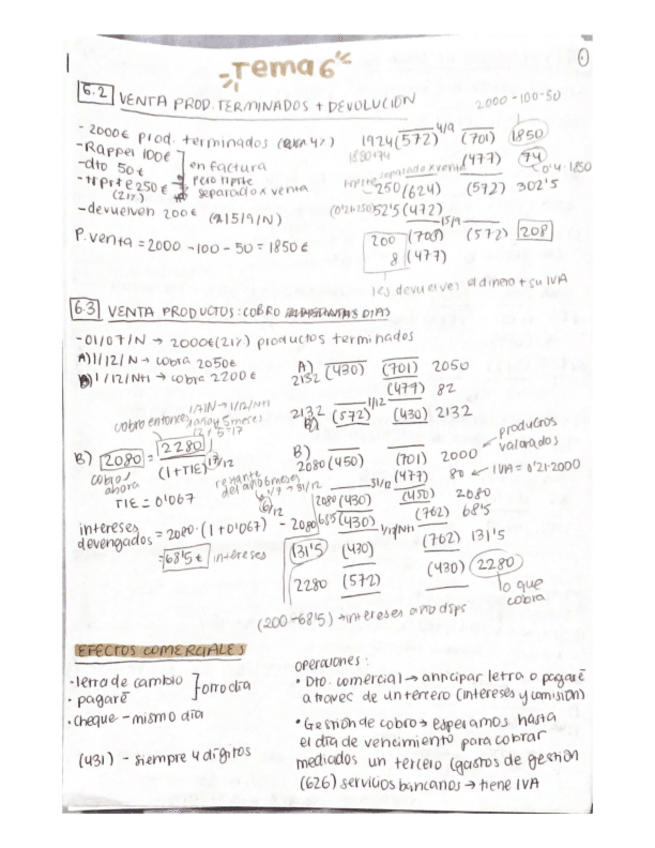 Tema 6
6.2 VENTA PROD. TERMINADOS + DEVOLUCIÓN
2000 - 100 - 50
- 2000€ prod. terminados
- Rappel 100€
- dto 50€
en factura
- trprte 250€
(21%)
pero trprte
separado x venta
- devuelven 200€ (15/9/N)
P. venta = 2000 - 100 - 50 = 1850€
4/9
1924 (572) (701) 1850
1850+74
(477) 74
0'4·1850
trprte separado x venta
250 (624) (572) 302'5
(0'21·250) 52'5 (472)
15/9
200 (708) (572) 208
8 (477)
les devuelves el dinero + su IVA
6.3 VENTA PRODUCTOS: COBRO DIAS
- 01/07/N → 2000€ (21%) productos terminados
A) 1/12/N → cobra 2050€
B) 1/12/N+1 → cobra 2200€
A) 2132 (430) (701) 2050
(477) 82
1/12
2132 (572) (430) 2132
cobro entonces
1/7/N → 1/12/N+1
1 año y 5 meses
12 + 5 = 17
B) 2080 = 2280
(1+TIE) 17/12
cobro ahora
TIE = 0'067
restante
del año 6 meses
1/7 → 31/12
6/12
intereses
devengados = 2080·(1+0'067) - 2080
= 68'5€ intereses
B)
2080 (450) (701) 2000
productos
valorados
(477) 80 ← IVA = 0'21·2000
31/12
2080 (430) (450) 2080
68'5 (430) (762) 68'5
1/12/N+1
131'5 (430) (762) 131'5
2280 (572) (430) 2280
lo que
cobra
(200 - 68'5) → intereses año dsps
EFECTOS COMERCIALES
· letra de cambio
· pagaré
otro día
· cheque - mismo día
(431) - siempre 4 dígitos
operaciones:
· Dto. comercial → anticipar letra o pagaré
a través de un tercero (intereses y comisión)
· Gestión de cobro → esperamos hasta
el día de vencimiento para cobrar
mediados un tercero (gastos de gestión
(626) servicios bancarios → tiene IVA